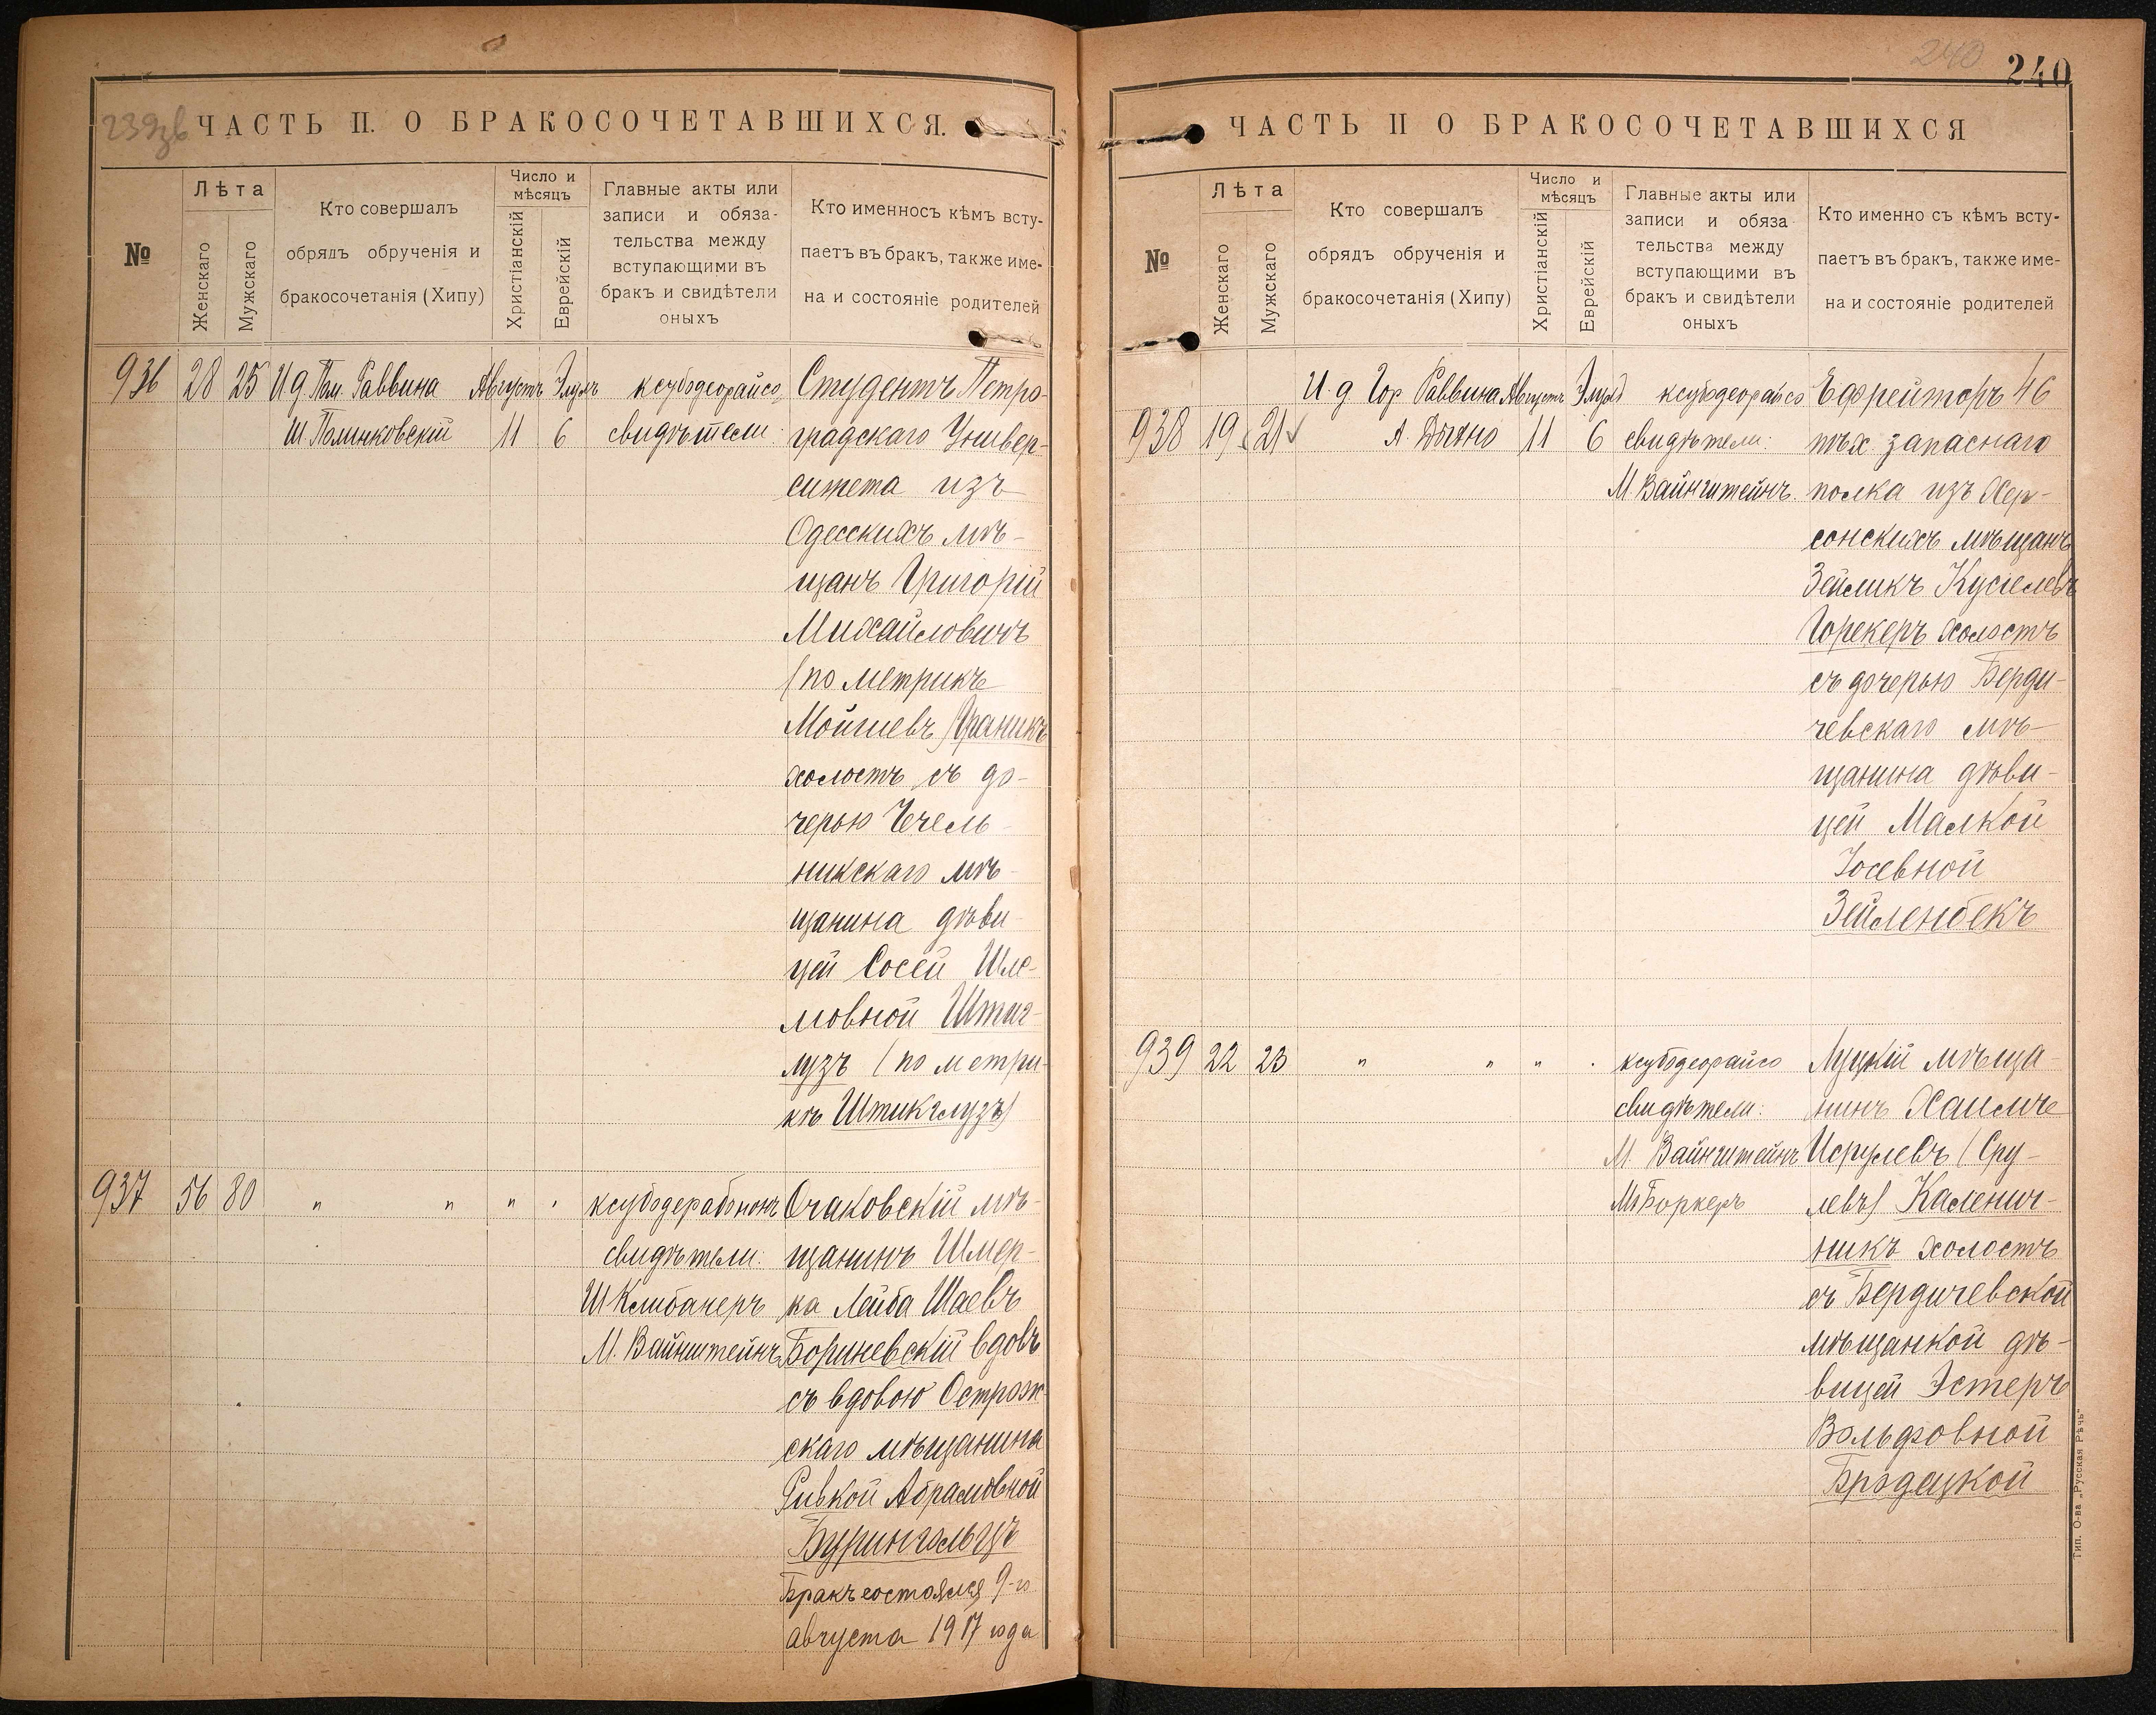 239зв
ЧАСТЬ II. О БРАКОСОЧЕТАВШИХСЯ.
№
Лѣта
Женскаго
Мужскаго
Кто совершалъ
обрядъ обрученія и
бракосочетанія (Хипу)
Число и
мѣсяцъ
Христіанскій
Еврейскій
Главные акты или
записи и обяза-
тельства между
вступающими въ
бракъ и свидѣтели
оныхъ
Кто именносъ кѣмъ всту-
паетъ въ бракъ, также име-
на и состояніе родителей
936 28 25 И д Пом. Раввина Августъ Элулъ ксубодеорайсо, Студентъ Петро-
Ш Полинковскій 11 6 свидѣтели: градскаго Универ-
ситета изъ
Одесскихъ мѣ-
щанъ Григорій
Михайловичъ
(по метрике
Мойшевъ) Граникъ
холостъ съ до-
черью Чечель-
никскаго мѣ-
щанина дѣви
цей Сосей Шле-
мовной Штиг-
лузъ (по метри-
кѣ Штикглузъ)
937 56 80 " " " " ксубодерабононъ Очаковскій мѣ-
свидѣтели: щанинъ Шмер-
Ш Клибанеръ ка Лейба Шаевъ
М. Вайнштейнъ Бориневскій вдовъ
съ вдовою Острож-
скаго мѣщанина
Ривкой Абрамовной
Бурингольцъ
Бракъ состоялся 9-го
августа 1917 года
240
240
ЧАСТЬ II О БРАКОСОЧЕТАВШИХСЯ
№
Лѣта
Женскаго
Мужскаго
Кто совершалъ
обрядъ обрученія и
бракосочетанія (Хипу)
Число и
мѣсяцъ
Христіанскій
Еврейскій
Главные акты или
записи и обяза
тельства между
вступающими въ
бракъ и свидѣтели
оныхъ
Кто именно съ кѣмъ всту-
паетъ въ бракъ, также име-
на и состояніе родителей
И. д Гор Раввина Августъ Элулъ ксубодеорайсо Ефрейторъ 46
938 19 21 А. Дыхно 11 6 свидѣтели: пѣх. запаснаго
М Вайнштейнъ. полка изъ Хер-
сонскихъ мѣщанъ
Зейликъ Кусіелевъ
Горекеръ холостъ
съ дочерью Берди-
чевскаго мѣ-
щанина дѣви-
цей Малкой
Іосевной
Зейленбекъ
939 22 23 " " " " ксубодеорайсо Луцкій мѣща-
свидѣтели: нинъ Хаимче
М. Вайнштейнъ Исрулевъ (Сру-
М. Боркеръ левъ) Каленич-
никъ холостъ
съ Бердичевской
мѣщанкой дѣ-
вицей Эстеръ
Вольфовной
Бродецкой
Тип. О-ва „Русская Рѣчь“